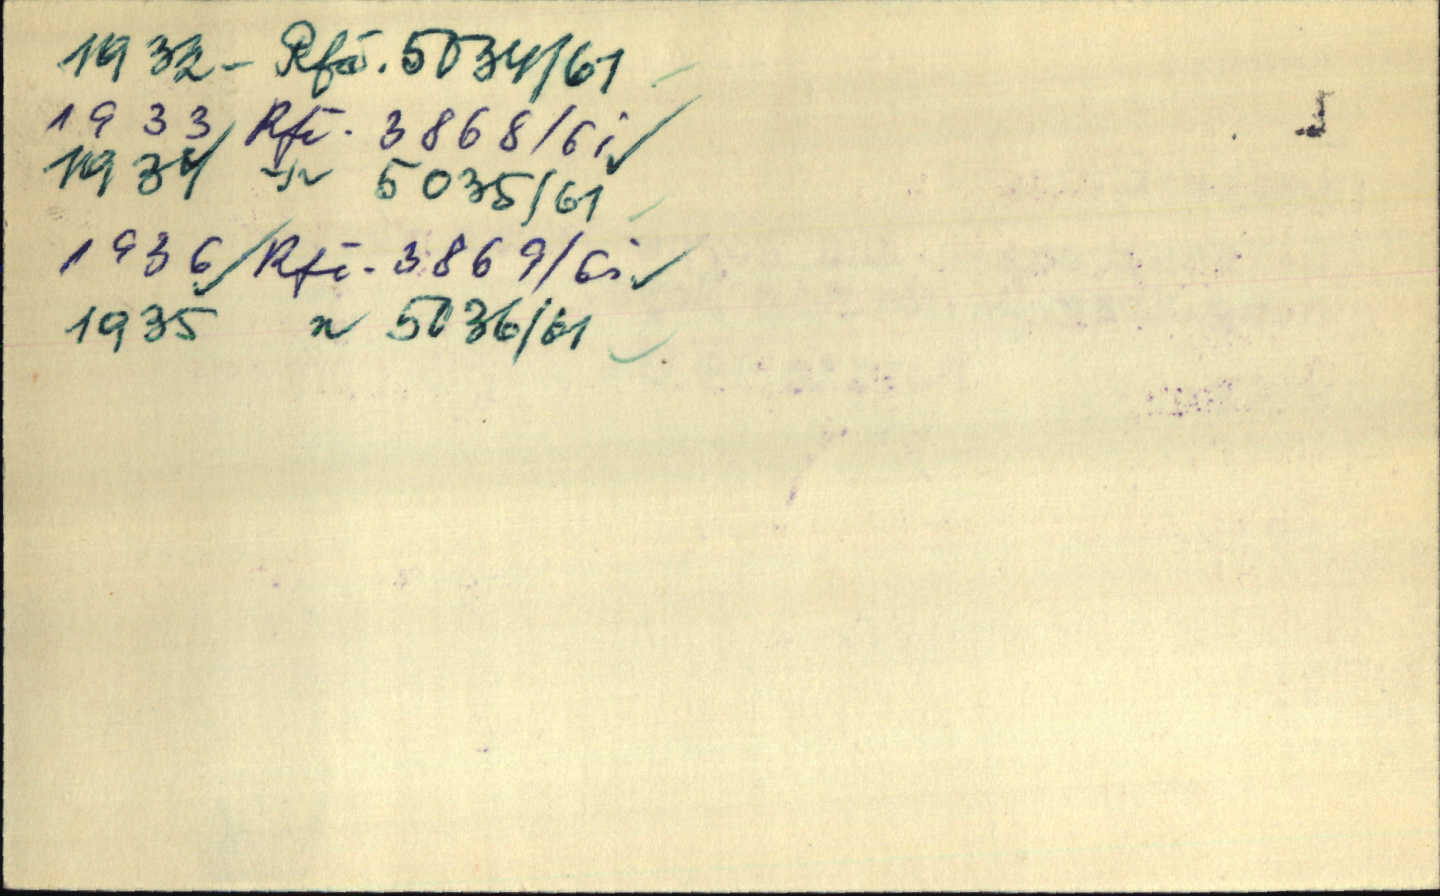 1932 - Rfā. 5034/61
1933 Rfī. 3868/61
1934 -"- 5035/61
1936 Rfī. 3869/61
1935 " 5036/61